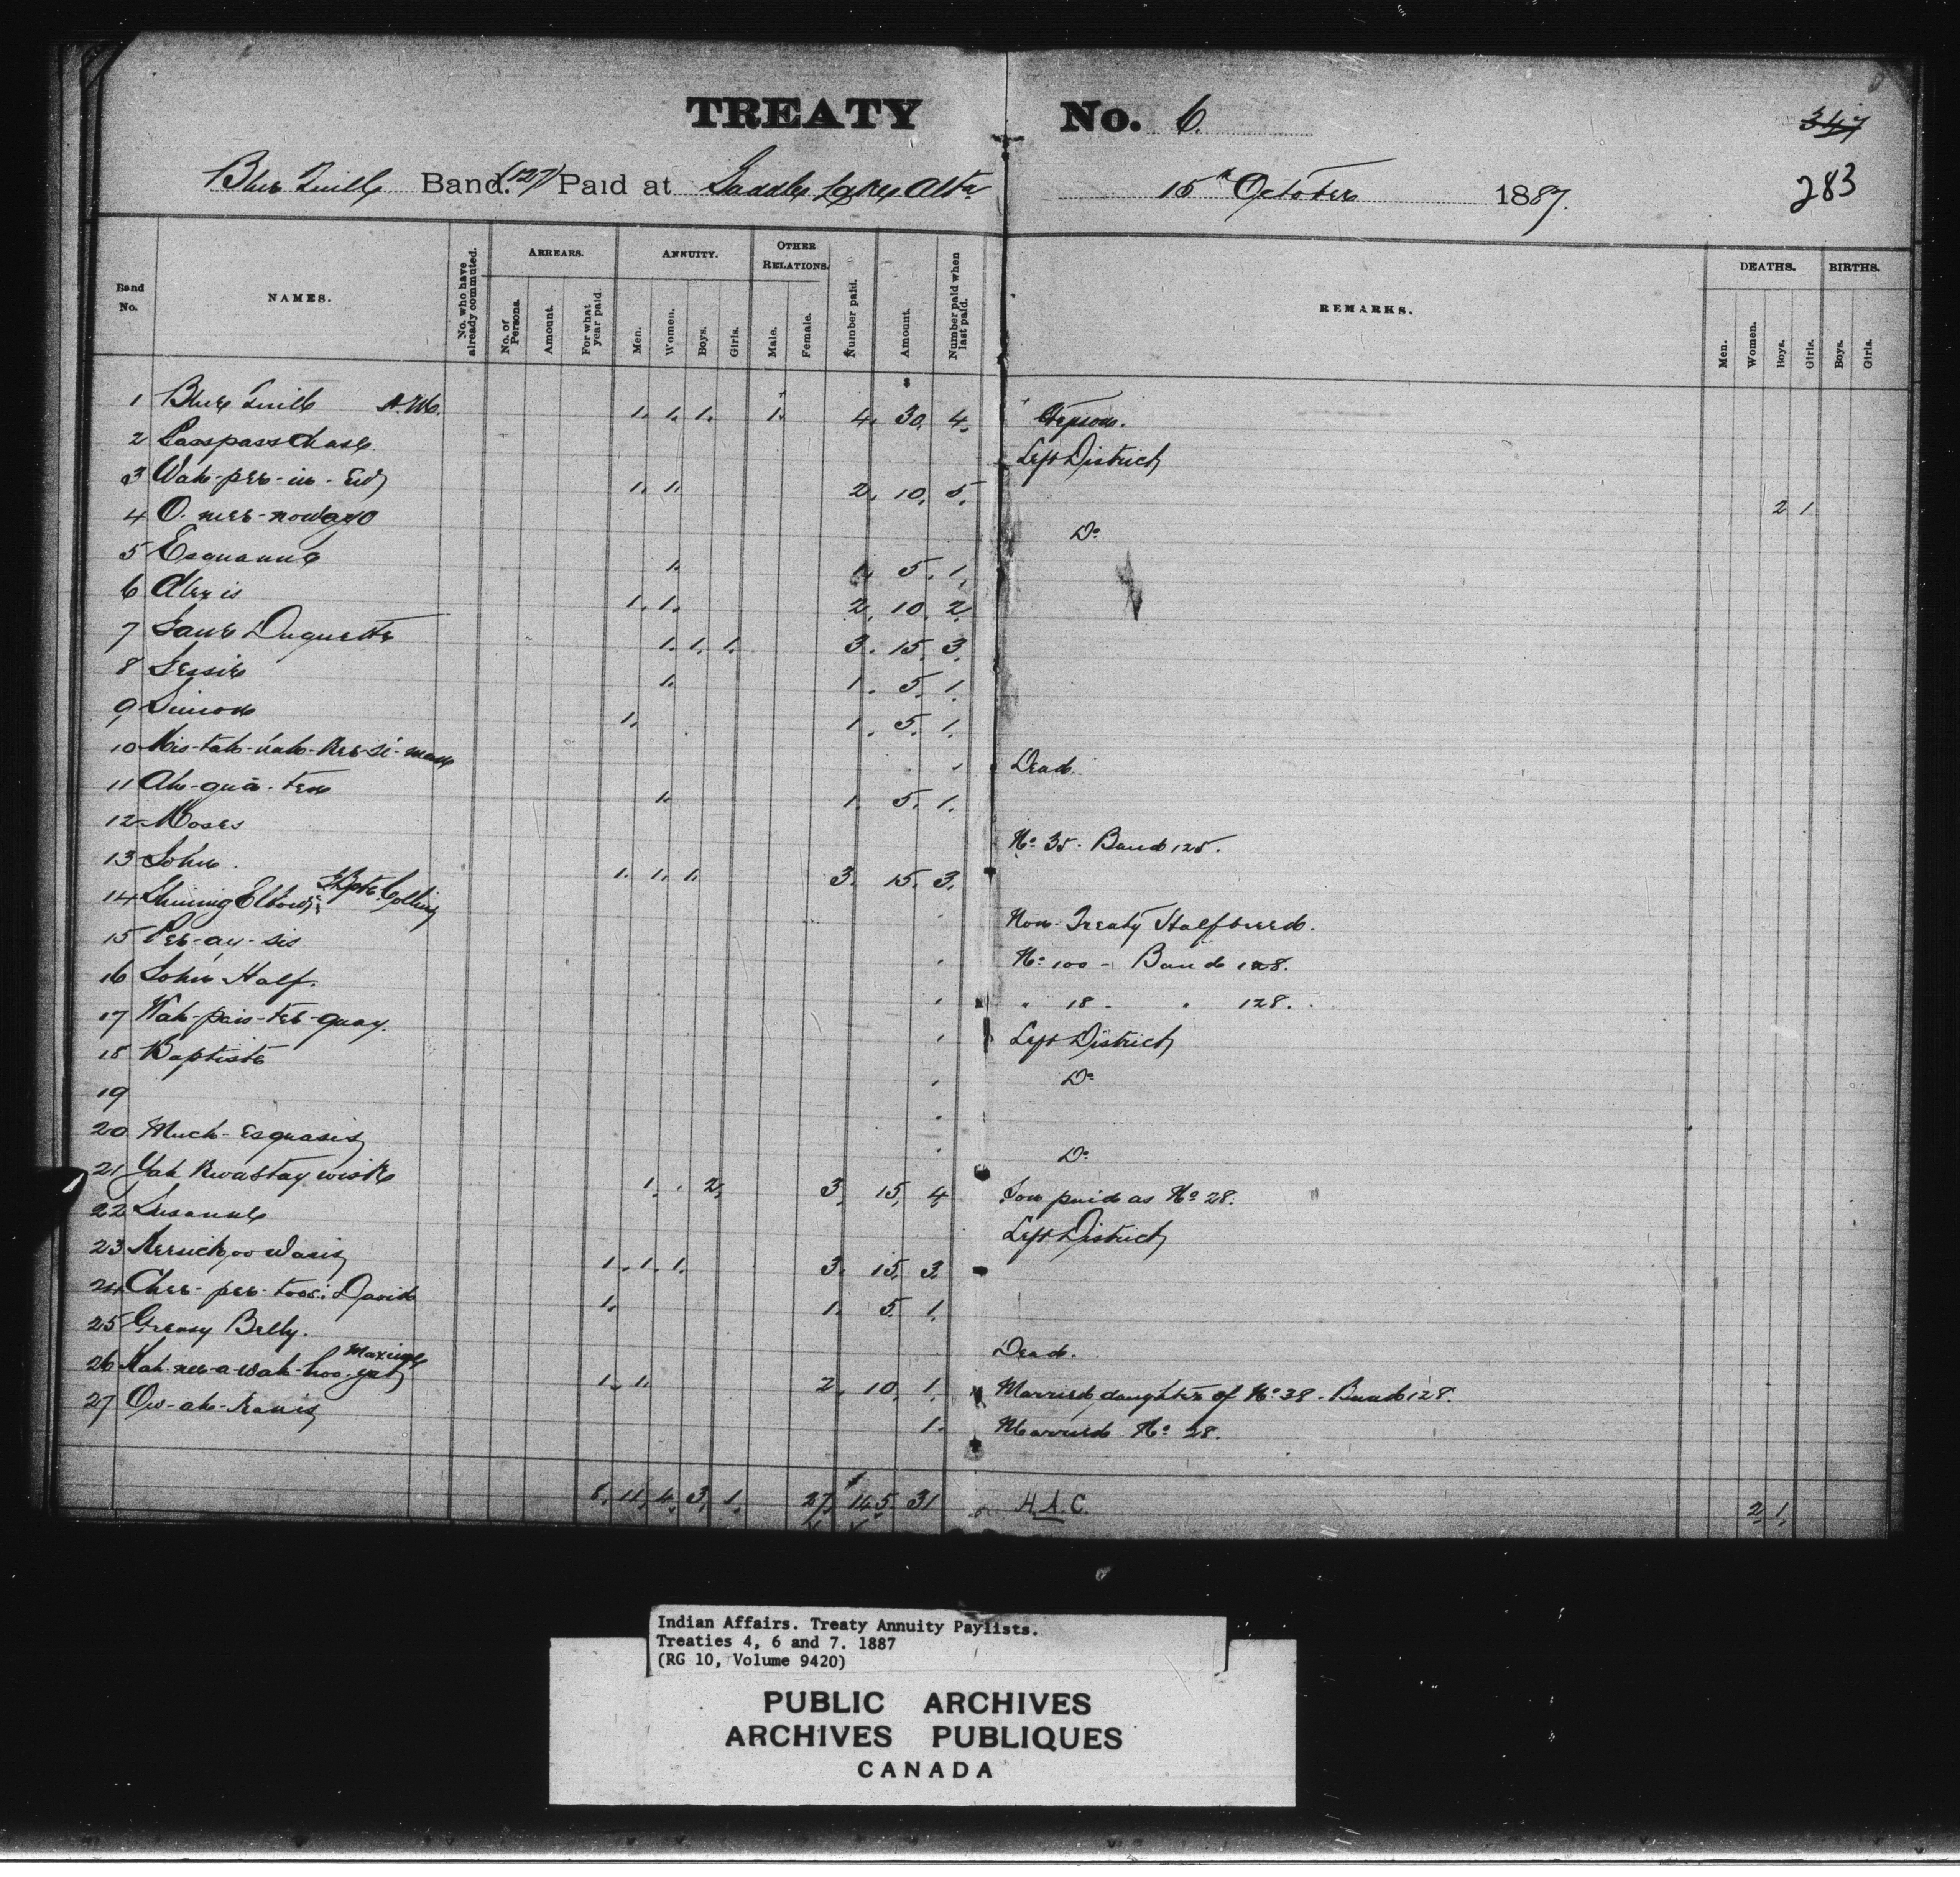 TREATY No. 6.
347
Blue Quill Band. (127) Paid at Saddle Lake Alta 15th October 1887. 283
Band No. NAMES. No. who have already commuted. ARREARS. No. of Persons. Amount. For what year paid. ANNUITY. Men. Women. Boys. Girls. OTHER RELATIONS. Male. Female. Number paid. Amount. Number paid when last paid. REMARKS. DEATHS. Men. Women. Boys. Girls. BIRTHS. Boys. Girls.
1 Blue Quill 1. 1. 1. 1. 4. $30. 4. Stepson.
2 Passpasschase Left District
3 Wah-pee-in-Ew 1. 1. 2. 10. 5. 2 1
4 O-nee-nowayo Do
5 Esquanne 1. 1. 5. 1.
6 Alexis 1. 1. 2. 10. 2.
7 Jane Duquette 1. 1. 1. 3. 15. 3.
8 Jessie 1. 1. 5. 1.
9 Simon 1. 1. 5. 1.
10 Mis-tah-nah-kee-si-man Dead.
11 Ah-qua-ten 1. 1. 5. 1.
12 Moses No 35. Band 125.
13 John. 1. 1. 1. 3. 15. 3.
14 Shining Elbow Collins Non-Treaty Halfbreed.
15 Pee-ay-sis No 100 - Band 128.
16 John Half. " 18 - " 128.
17 Wah-pais-tee-quay. Left District
18 Baptiste Do
19
20 Much-Esquasis Do
21 Yah Kwastay wisk 1. 2. 3. 15. 4. Son paid as No 28.
22 Susanne Left District
23 Wasis 1. 1. 1. 3. 15. 3.
24 Chee-pee-toos: David 1. 1. 5. 1.
25 Greasy Belly. Dead.
26 Kah-nee-a-wah-hoo-gat Maxime 1. 1. 2. 10. 1. Married daughter of No 38. Band 128.
27 1. Married No 28.
8. 11. 4. 3. 1. 27. $145 31 H.A.C. 2. 1.
Indian Affairs. Treaty Annuity Paylists.
Treaties 4, 6 and 7. 1887
(RG 10, Volume 9420)
PUBLIC ARCHIVES
ARCHIVES PUBLIQUES
CANADA